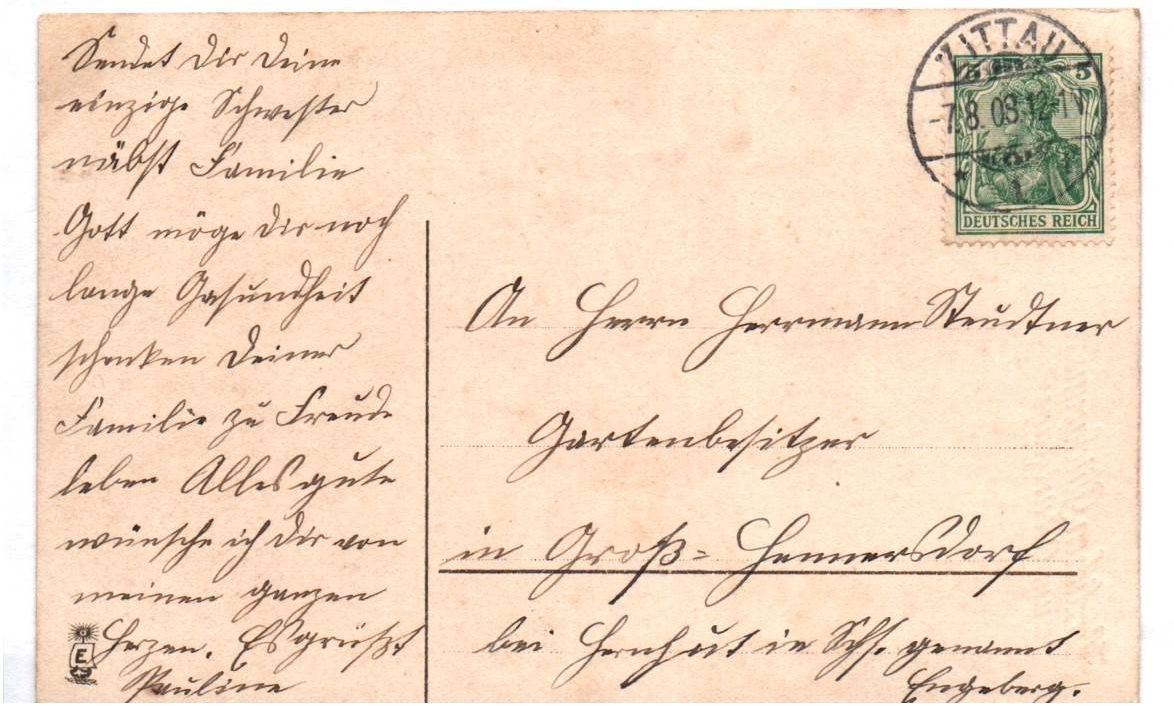 Sendet Dir Deine
einzige Schwester
näbst Familie
Gott möge Dir noch
lange Gesundheit
schenken Deiner
Familie zu Freude
leben Alles gute
wünsche ich Dir von
meinen ganzen
Herzen. Es grüßt
Pauline
E
ZITTAU
-7.8.08.12-1V
* 1
5 5
DEUTSCHES REICH
An Herrn Herrmann Steudtner
Gartenbesitzer
in Groß-Hennersdorf
bei Hernhut in Schs. genannt
Engeberg.